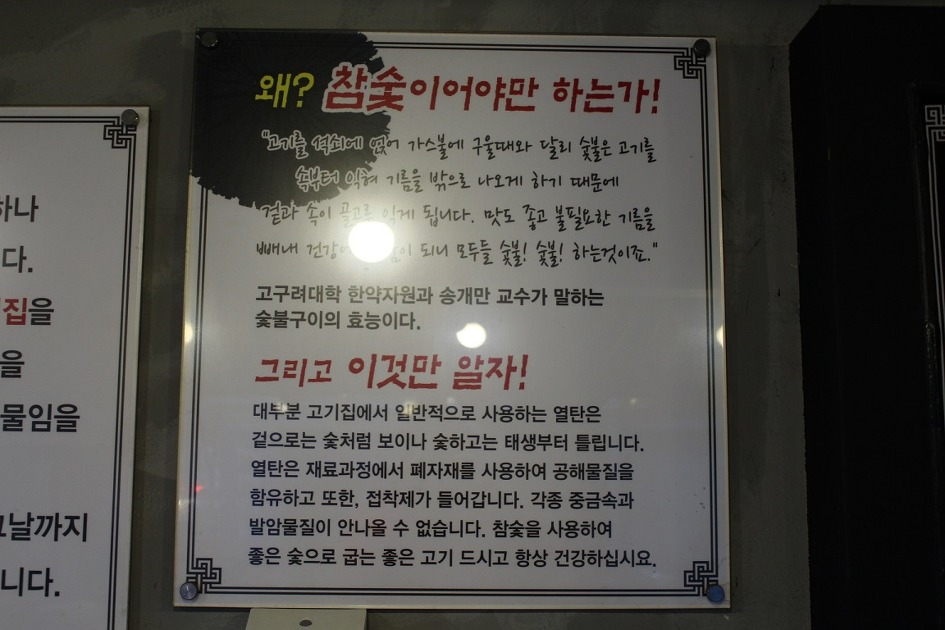 왜? 참숯이어야만 하는가!
"고기를 석쇠에 얹어 가스불에 구울때와 달리 숯불은 고기를
속부터 익혀 기름을 밖으로 나오게 하기 때문에
겉과 속이 골고루 익게 됩니다. 맛도 좋고 불필요한 기름을
빼내 되니 모두들 숯불! 숯불! 하는것이죠."
고구려대학 한약자원과 송개만 교수가 말하는
숯불구이의 효능이다.
그리고 이것만 알자!
대부분 고기집에서 일반적으로 사용하는 열탄은
겉으로는 숯처럼 보이나 숯하고는 태생부터 틀립니다.
열탄은 재료과정에서 폐자재를 사용하여 공해물질을
함유하고 또한, 접착제가 들어갑니다. 각종 중금속과
발암물질이 안나올 수 없습니다. 참숯을 사용하여
좋은 숯으로 굽는 좋은 고기 드시고 항상 건강하십시요.
하나
다.
집을
을
물임을
그날까지
니다.